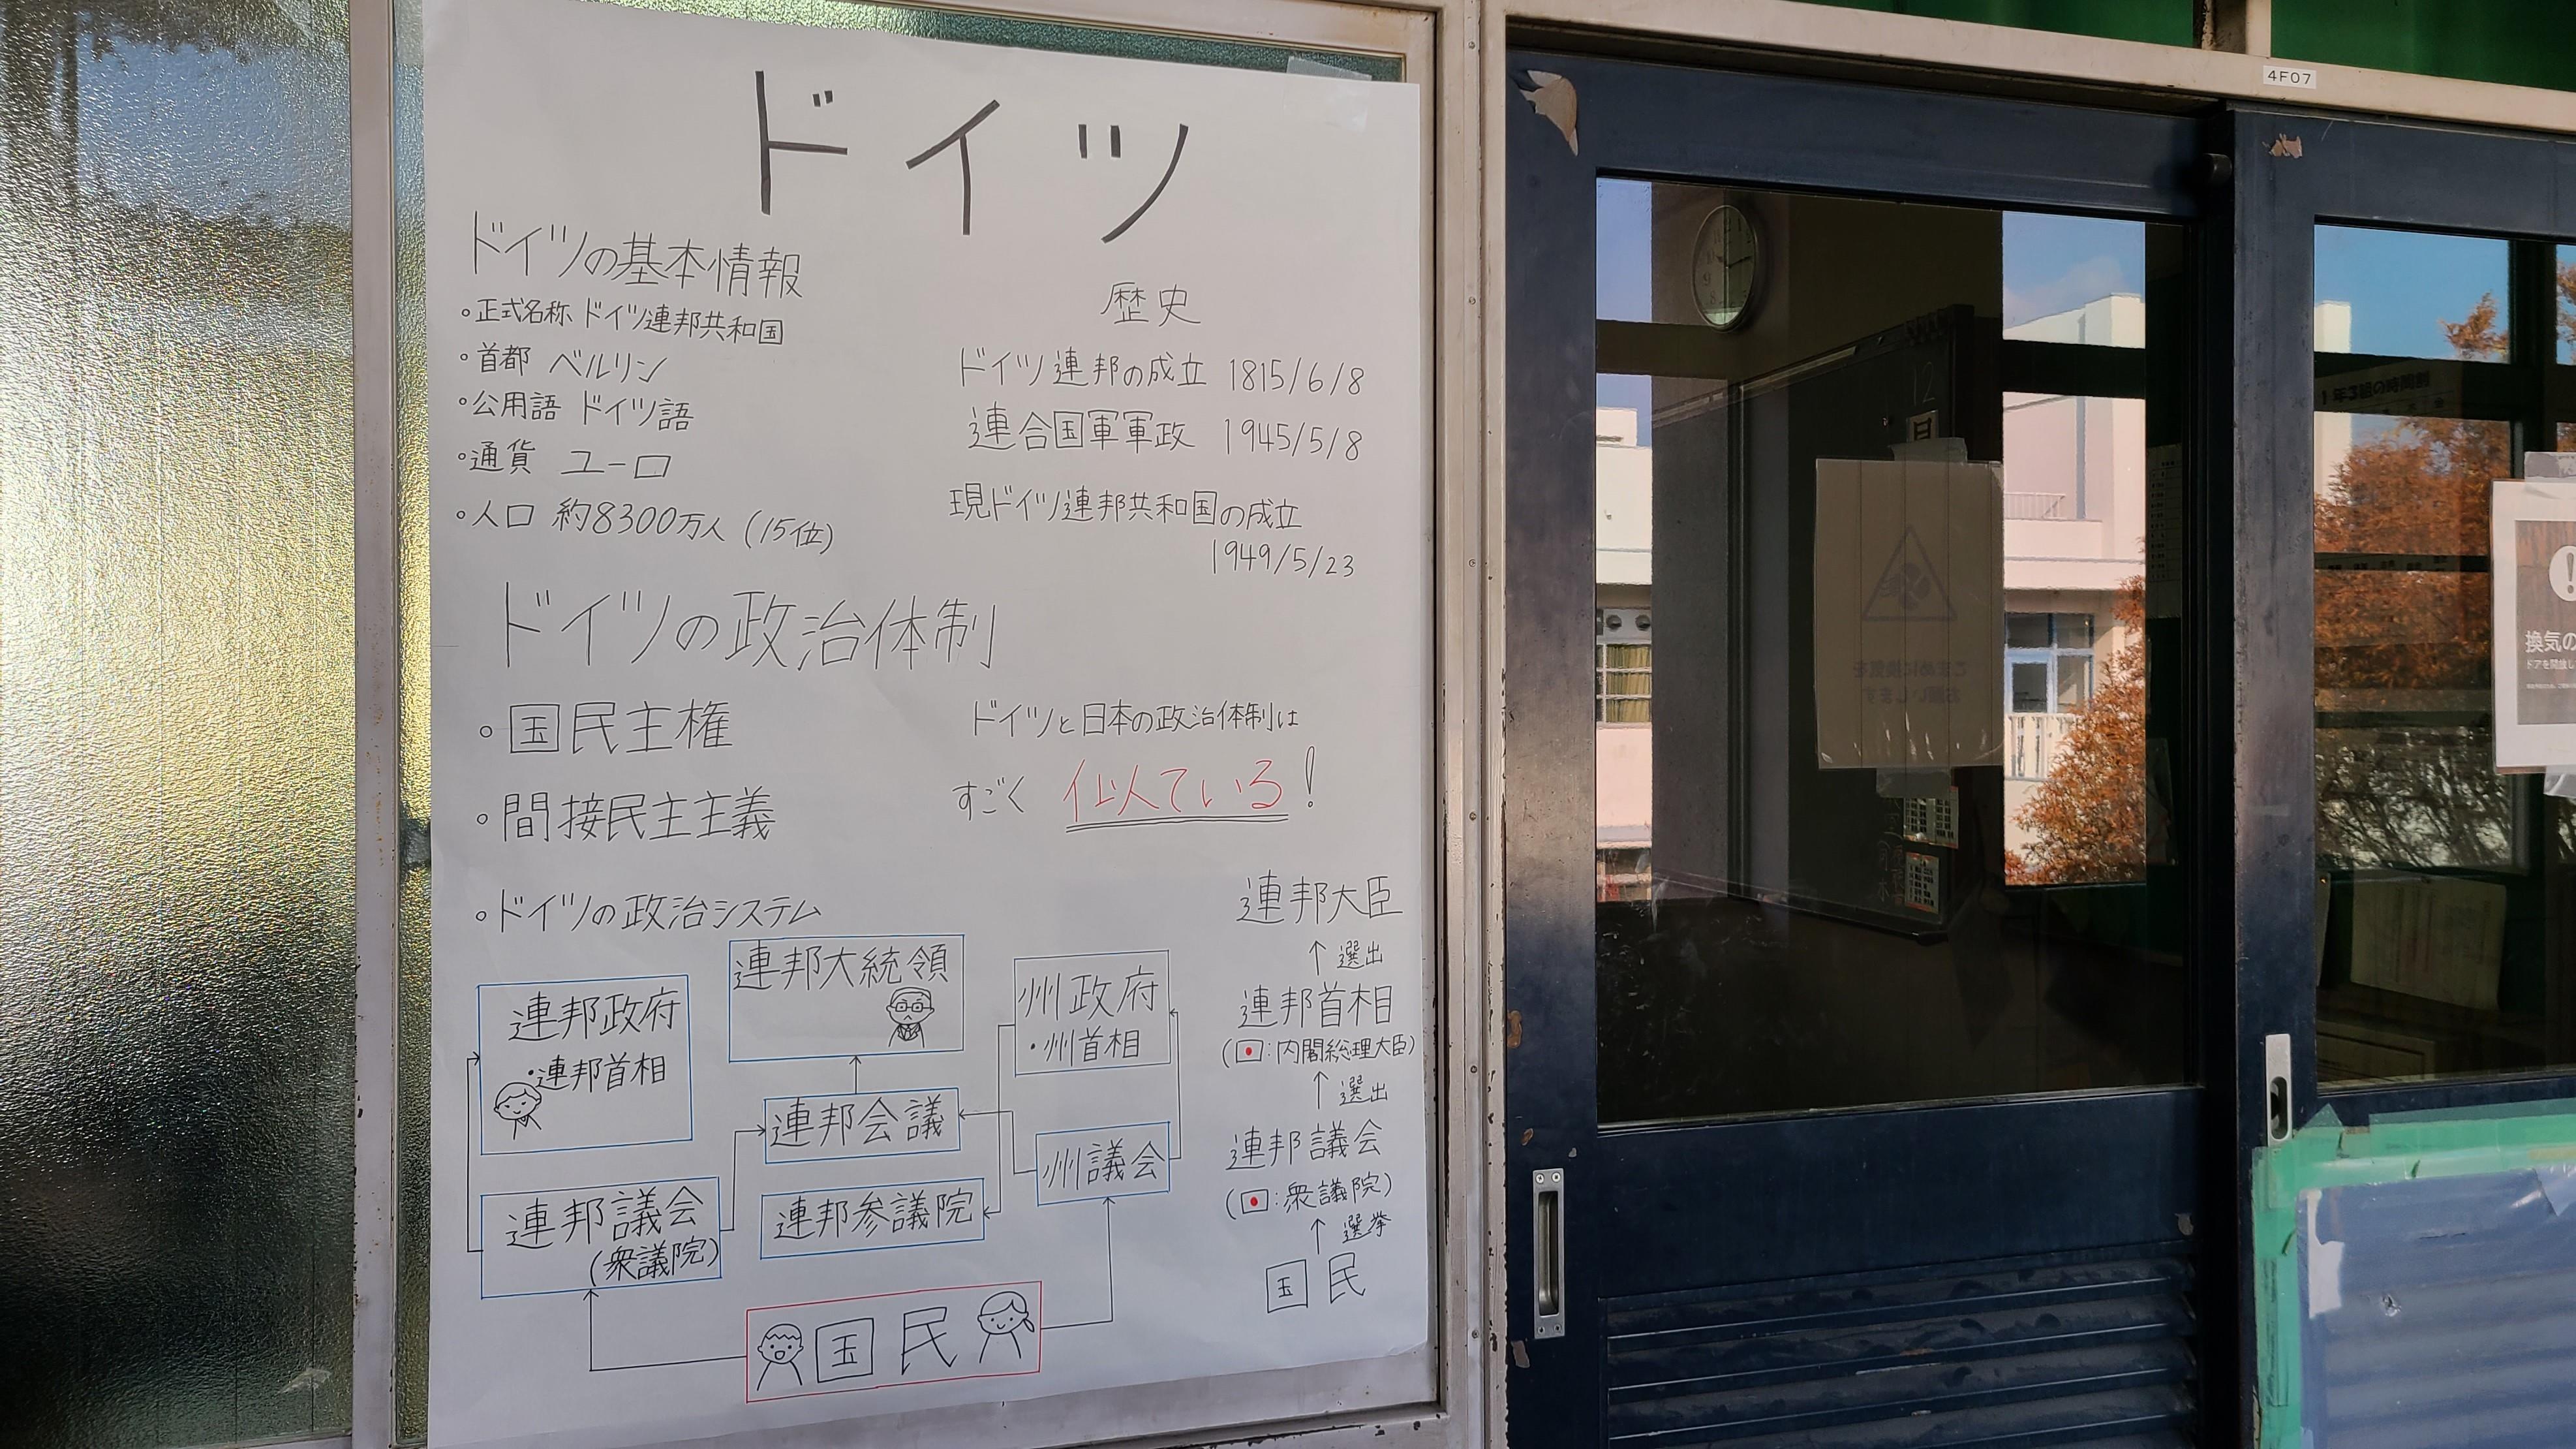 ドイツ
ドイツの基本情報
◦正式名称 ドイツ連邦共和国
◦首都 ベルリン
◦公用語 ドイツ語
◦通貨 ユーロ
◦人口 約8300万人 (15位)
歴史
ドイツ連邦の成立 1815/6/8
連合国軍軍政 1945/5/8
現ドイツ連邦共和国の成立
1949/5/23
ドイツの政治体制
◦国民主権
◦間接民主主義
ドイツと日本の政治体制は
すごく 似ている!
◦ドイツの政治システム
連邦政府
・連邦首相
連邦大統領
州政府
・州首相
連邦会議
州議会
連邦議会
(衆議院)
連邦参議院
国民
連邦大臣
↑ 選出
連邦首相
(🇯🇵:内閣総理大臣)
↑ 選出
連邦議会
(🇯🇵:衆議院)
↑ 選挙
国民
4F07
12
1年3組の時間割
こまめに換気を
お願いします
換気の